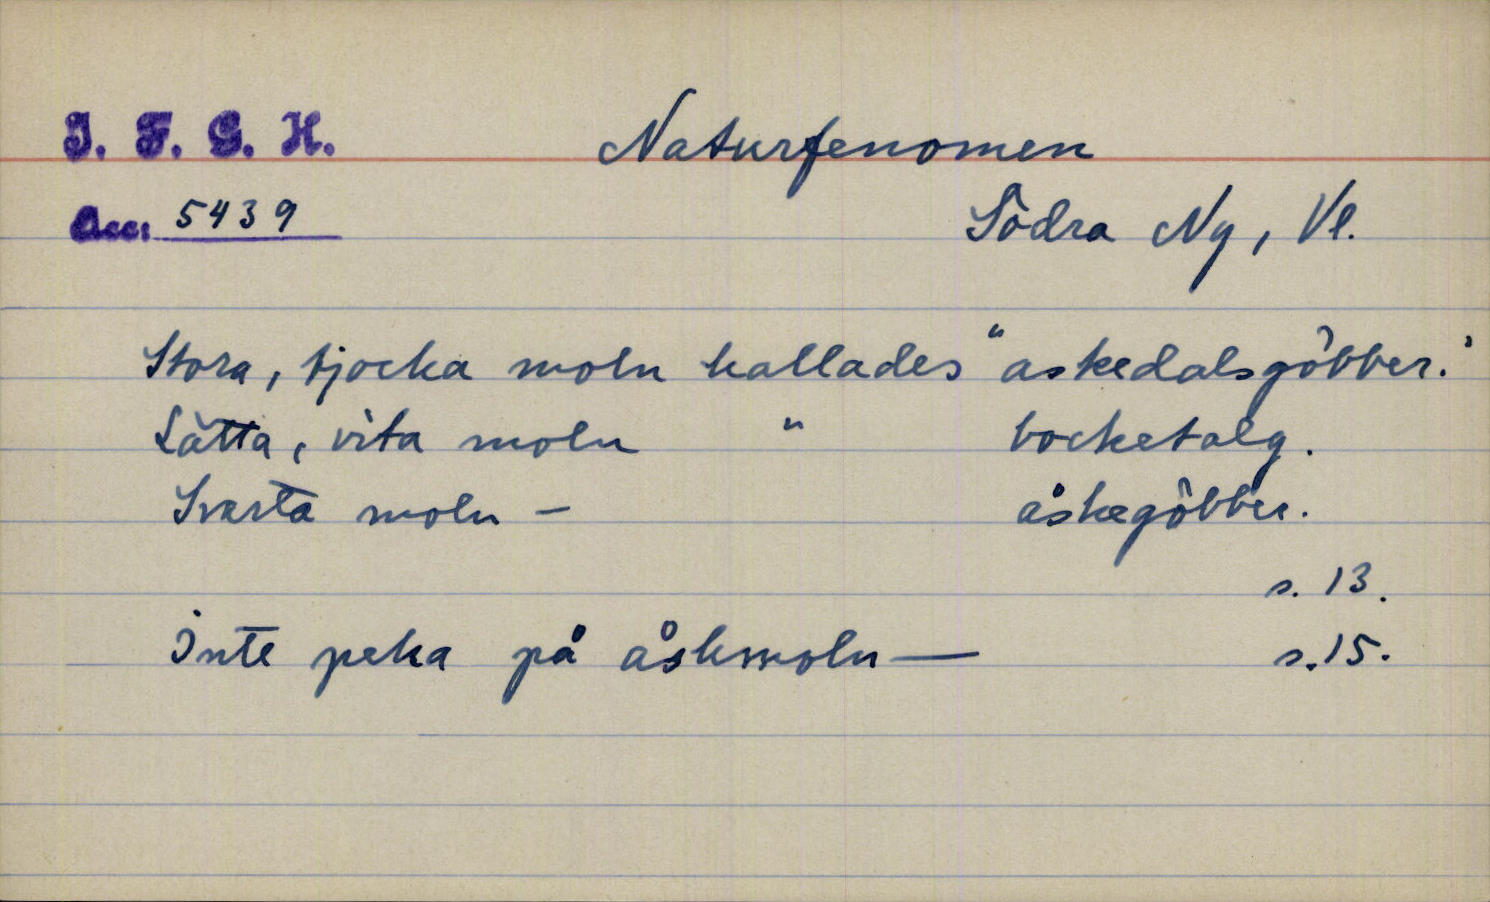 I. F. G. H.
Naturfenomen
Acc: 5439
Södra Ny, Vl.
Stora, tjocka moln kallades "askedalsgöbber."
Lätta, vita moln " bocketalg.
Svarta moln – åskegöbber.
s. 13.
Inte peka på åskmoln — s. 15.